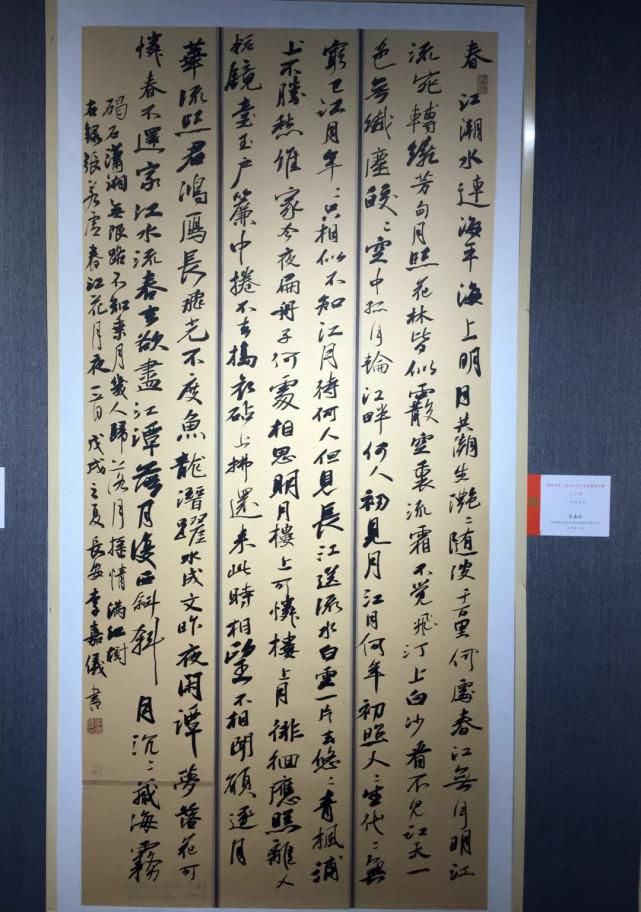 春江潮水連海平海上明月共潮生灔〻随波千万里何處春江無月明江
流宛轉繞芳甸月照花林皆似霰空裏流霜不覺飛汀上白沙看不見江天一
色無纖塵皎〻空中孤月輪江畔何人初見月江月何年初照人〻生代〻無
窮已江月年〻只相似不知江月待何人但見長江送流水白雲一片去悠〻青楓浦
上不勝愁誰家今夜扁舟子何處相思明月樓上可憐樓上月徘徊應照離人
妝鏡臺玉户簾中捲不去搗衣砧上拂還来此時相望不相聞願逐月
華流照君鴻鴈長飛光不度魚龍潛躍水成文昨夜閑潭夢落花可
憐春不還家江水流春去欲盡江潭落月復西斜斜月沉〻藏海霧
碣石瀟湘無限路不知乘月幾人歸落月摇情滿江樹
右録張若虚春江花月夜一首戊戌之夏長安李嘉儀書